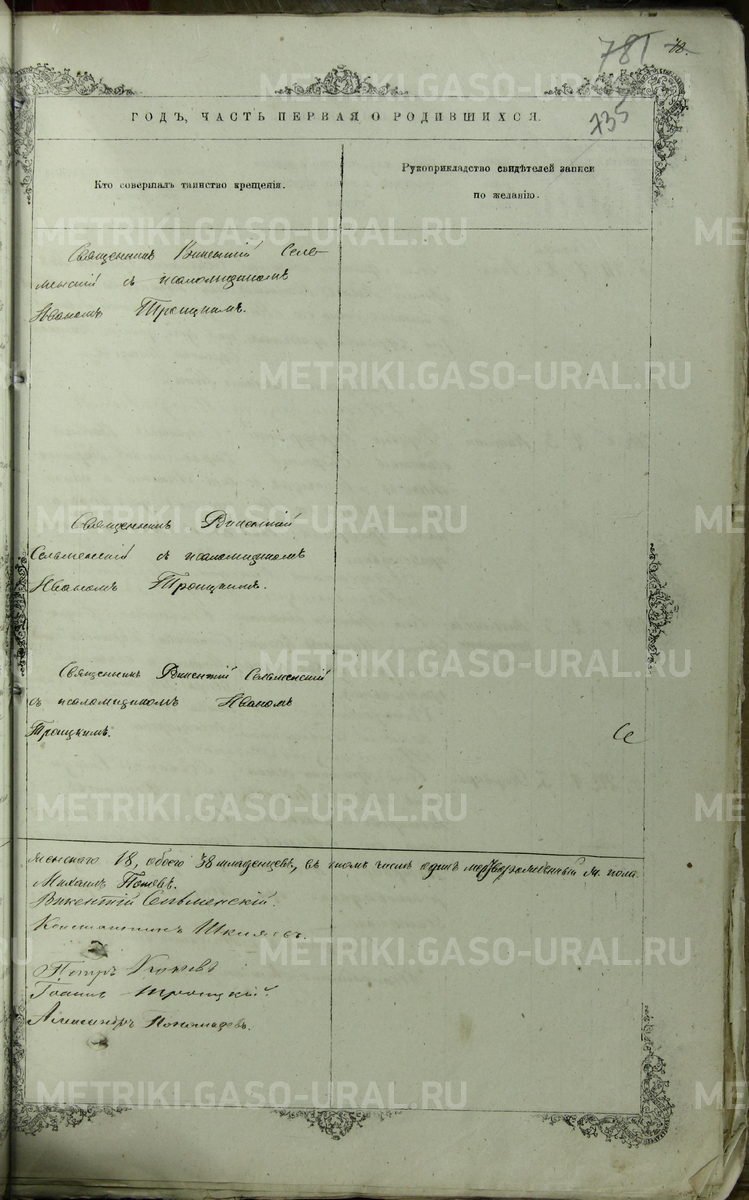 781 78.
735
ГОДЪ, ЧАСТЬ ПЕРВАЯ О РОДИВШИХСЯ.
Кто совершалъ таинство крещенія.
Рукоприкладство свидѣтелей записи
по желанію.
Священникъ Викентій Сель-
менскій съ псаломщикомъ
Иваномъ Троицкимъ.
Священникъ Викентій
Сельменскій съ псаломщикомъ
Иваномъ Троицкимъ.
Священникъ Викентій Сельменскій
съ псаломщикомъ Иваномъ
Троицкимъ.
Се
женскаго 18, обоего 38 младенцевъ, въ томъ числѣ одинъ мертворожденный м. пола
Михаилъ Поповъ.
Викентій Сельменскій.
Константинъ
Петръ
Іоаннъ Троицкій.
Александръ Пономаревъ.
METRIKI.GASO-URAL.RU